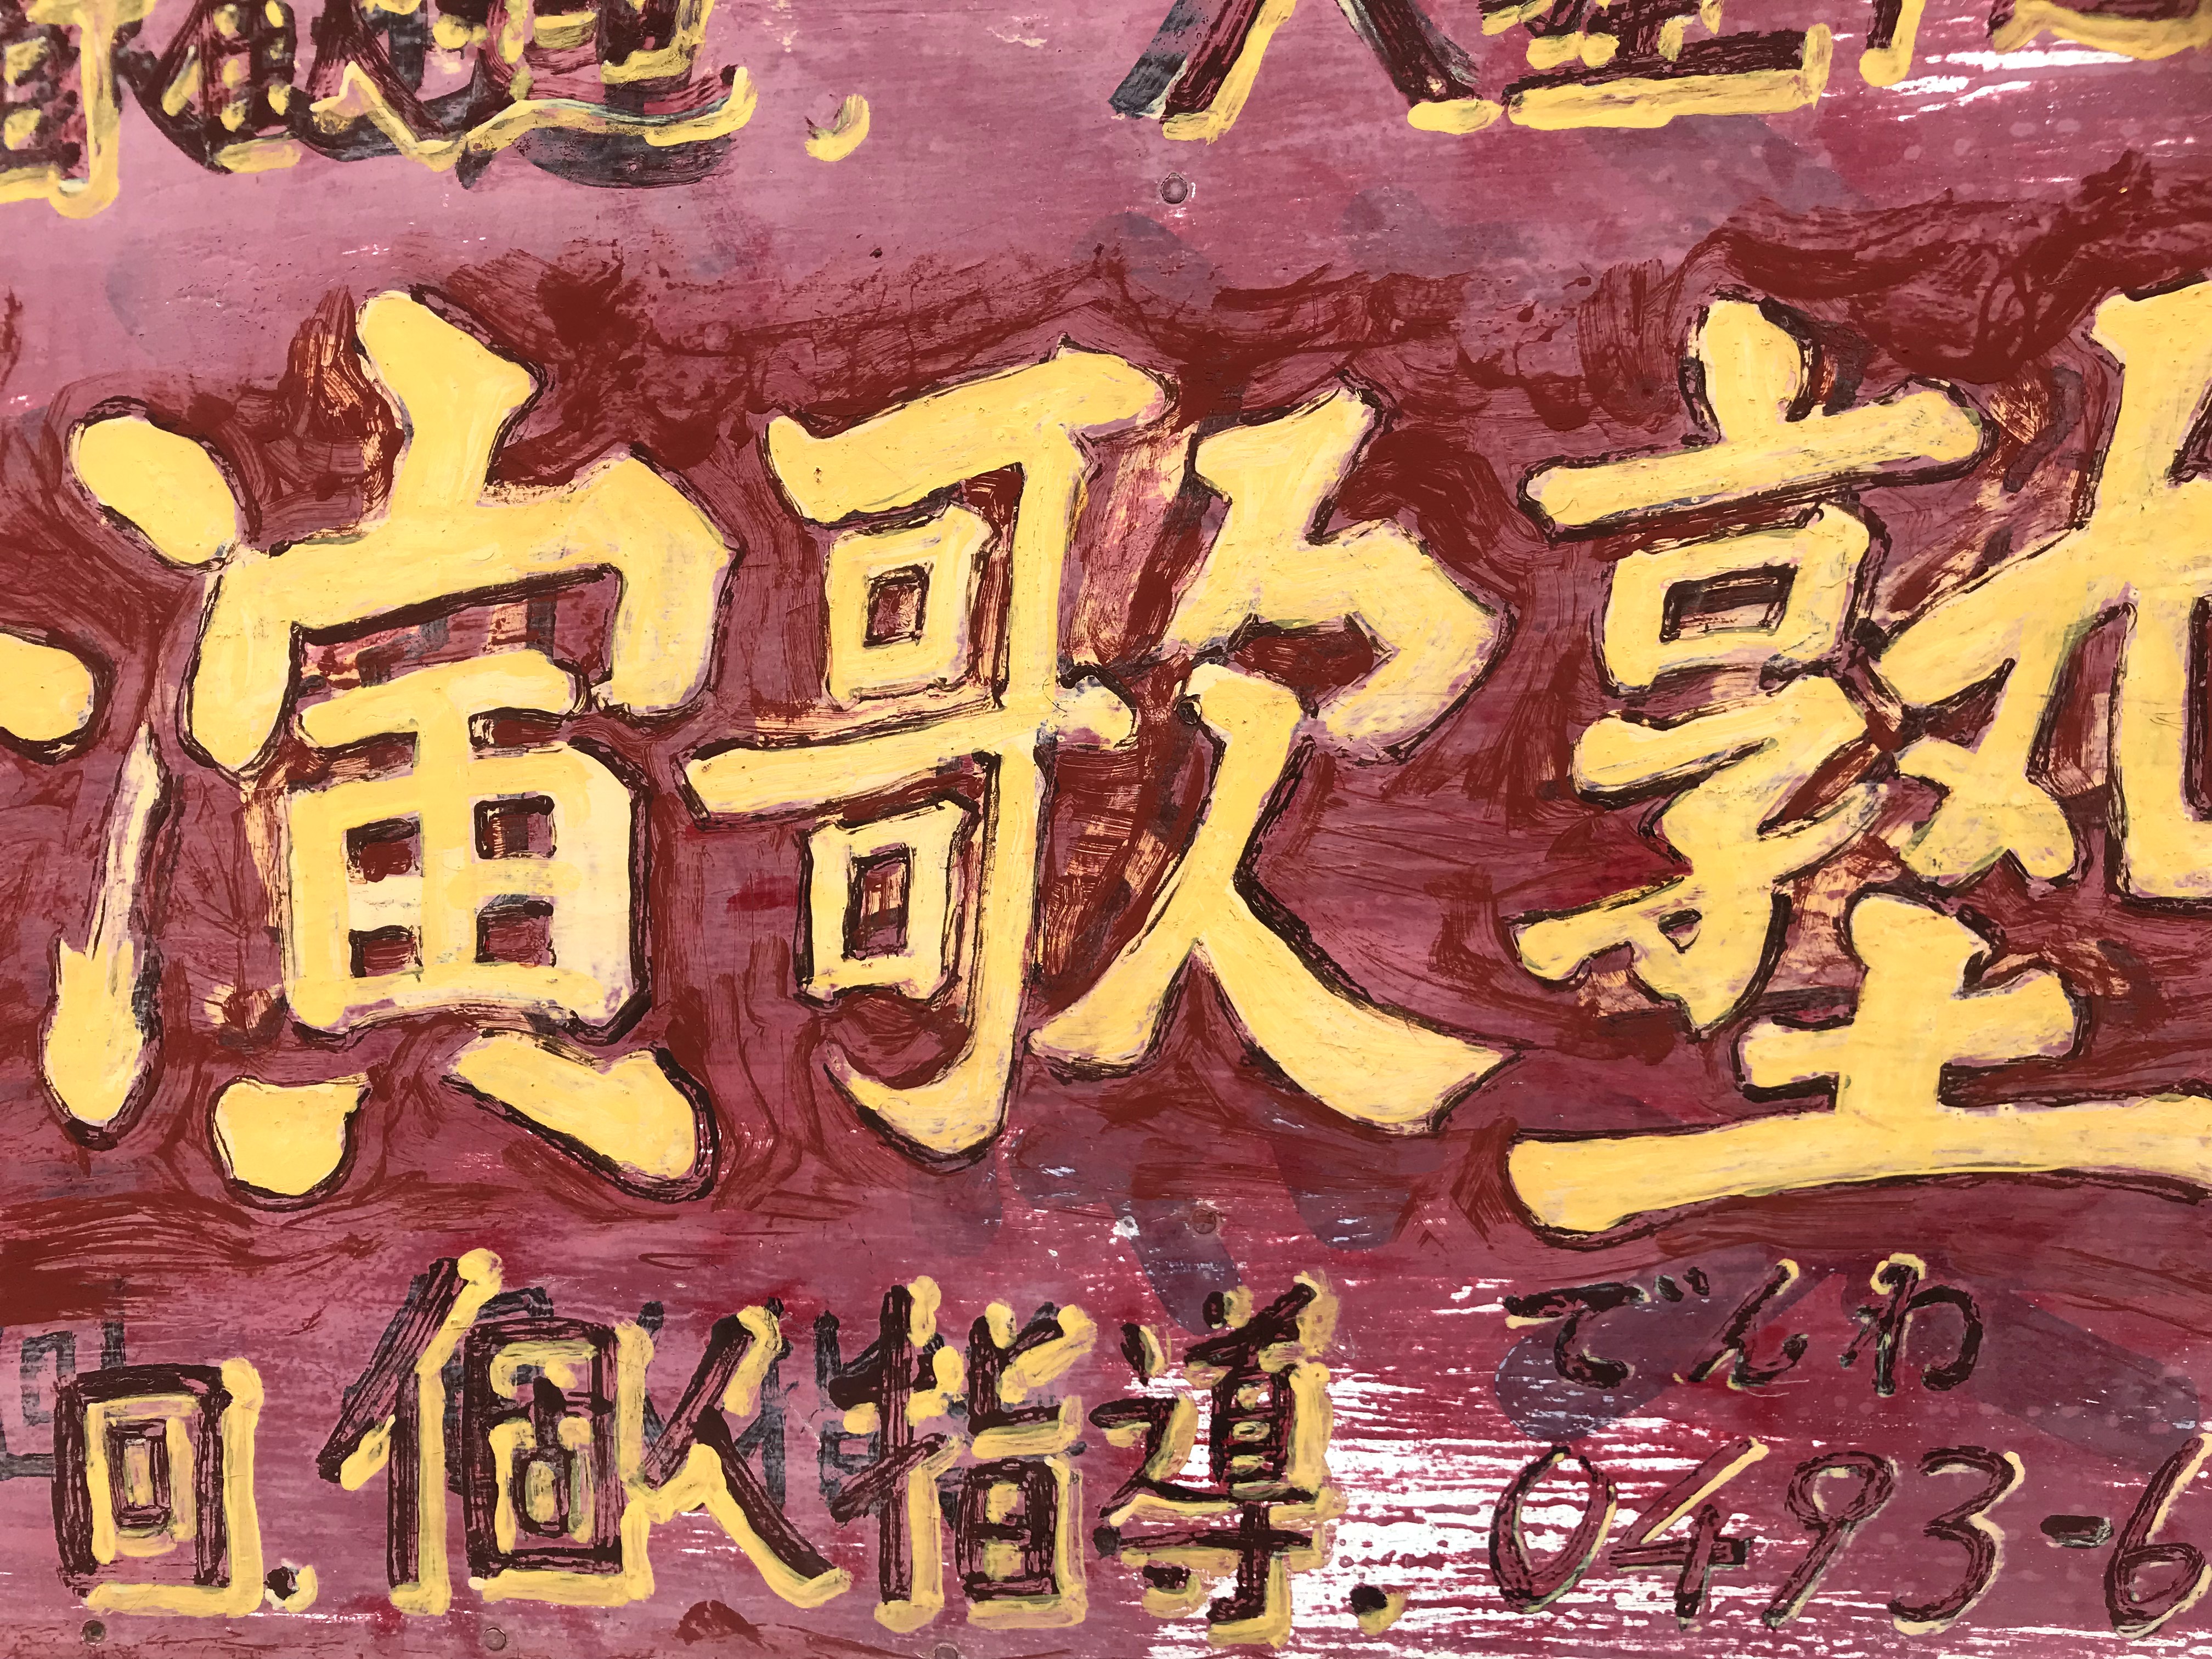 演歌塾
回.個人指導.
でんわ
0493-6